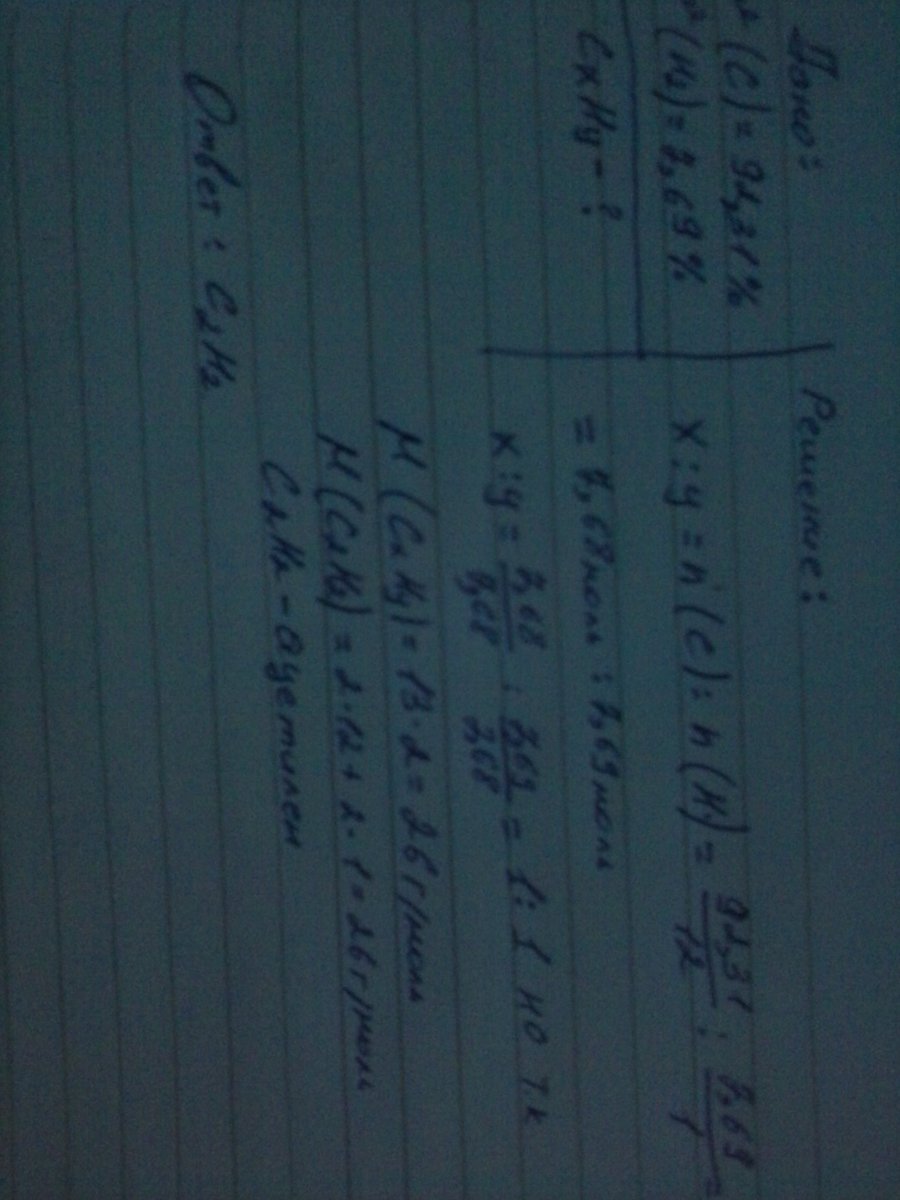 Дано:
(C) = 92,31%
(H2) = 7,69%
CxHy - ?
Решение:
x : y = n(C) : n(H) = 92,31/12 : 7,69/1 =
= 7,68 моль : 7,69 моль
x : y = 7,68/7,68 : 7,69/7,68 = 1 : 1 но т.к
M(CxHy) = 13 · 2 = 26 г/моль
M(C2H2) = 2 · 12 + 2 · 1 = 26 г/моль
C2H2 - ацетилен
Ответ : C2H2